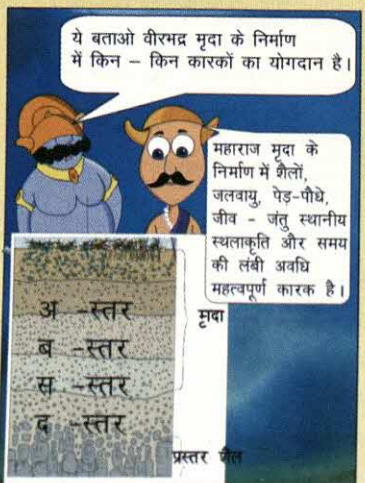 ये बताओ वीरभद्र मृदा के निर्माण
में किन – किन कारकों का योगदान है।
महाराज मृदा के
निर्माण में शैलों,
जलवायु, पेड़-पौधे,
जीव - जंतु स्थानीय
स्थलाकृति और समय
की लंबी अवधि
महत्वपूर्ण कारक है।
मृदा
अ -स्तर
ब -स्तर
स -स्तर
द -स्तर
प्रस्तर शैल